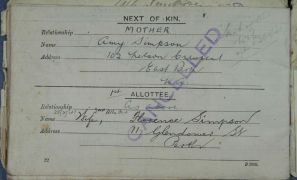 NEXT OF KIN.
Relationship MOTHER
Name Amy Simpson
Address 102 Nelson Crescent
East
CANCELLED
1st ALLOTTEE
Relationship
Name Wife, Florence Simpson
Address 111 Glendower St
Perth
22